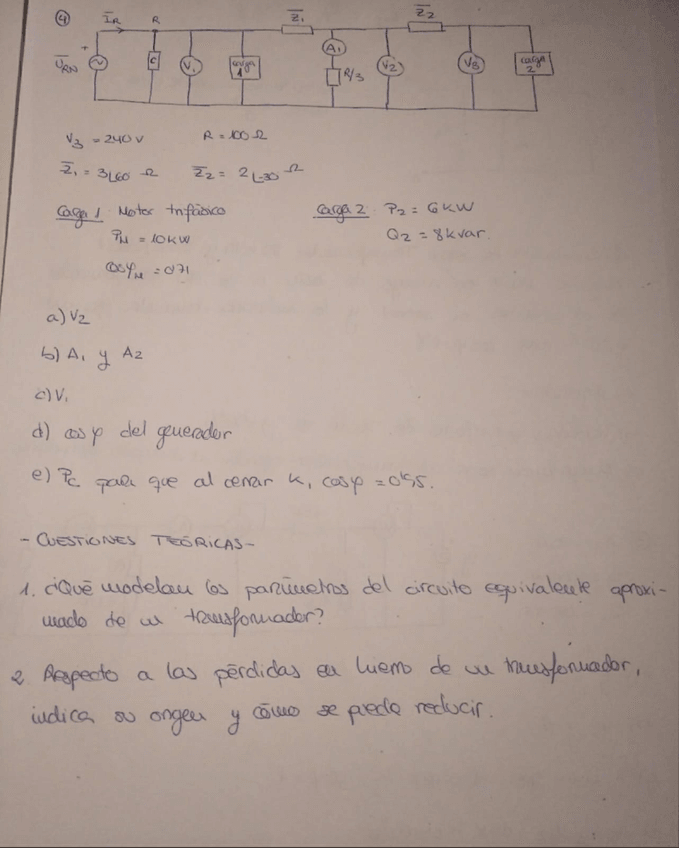 ④ I̅R R Z̅1 Z̅2
A1
U̅RN C V1 carga 1 R/3 V2 V3 carga 2
V3 = 240 V R = 100 Ω
Z̅1 = 3∠60 Ω Z̅2 = 2∠-30 Ω
Carga 1 Motor trifásico Carga 2 P2 = 6 KW
PM = 10 KW Q2 = 8 kvar.
cosφM = 0'71
a) V2
b) A1 y A2
c) V1
d) cos φ del generador
e) Pc para que al cerrar K, cosφ = 0'95.
- CUESTIONES TEÓRICAS -
1. ¿Qué modelan los parámetros del circuito equivalente aproxi-
mado de un transformador?
2 Respecto a las pérdidas en hierro de un transformador,
indica su origen y cómo se puede reducir.